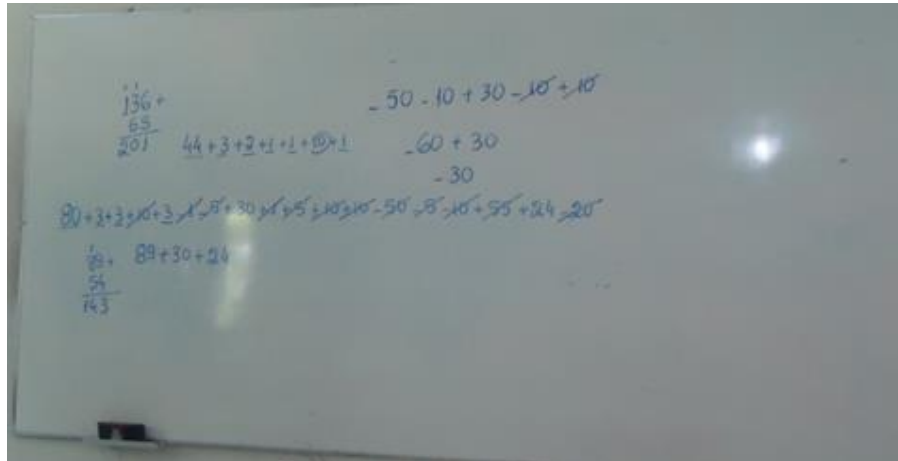 136+
65
201
44+3+2+1+1+1+10+1
-50-10+30-10+10
-60+30
-30
80+3+3+10+3-1-5+30+1+5+10+10-50-5-10+55+24-20
89+
54
143
89+30+24